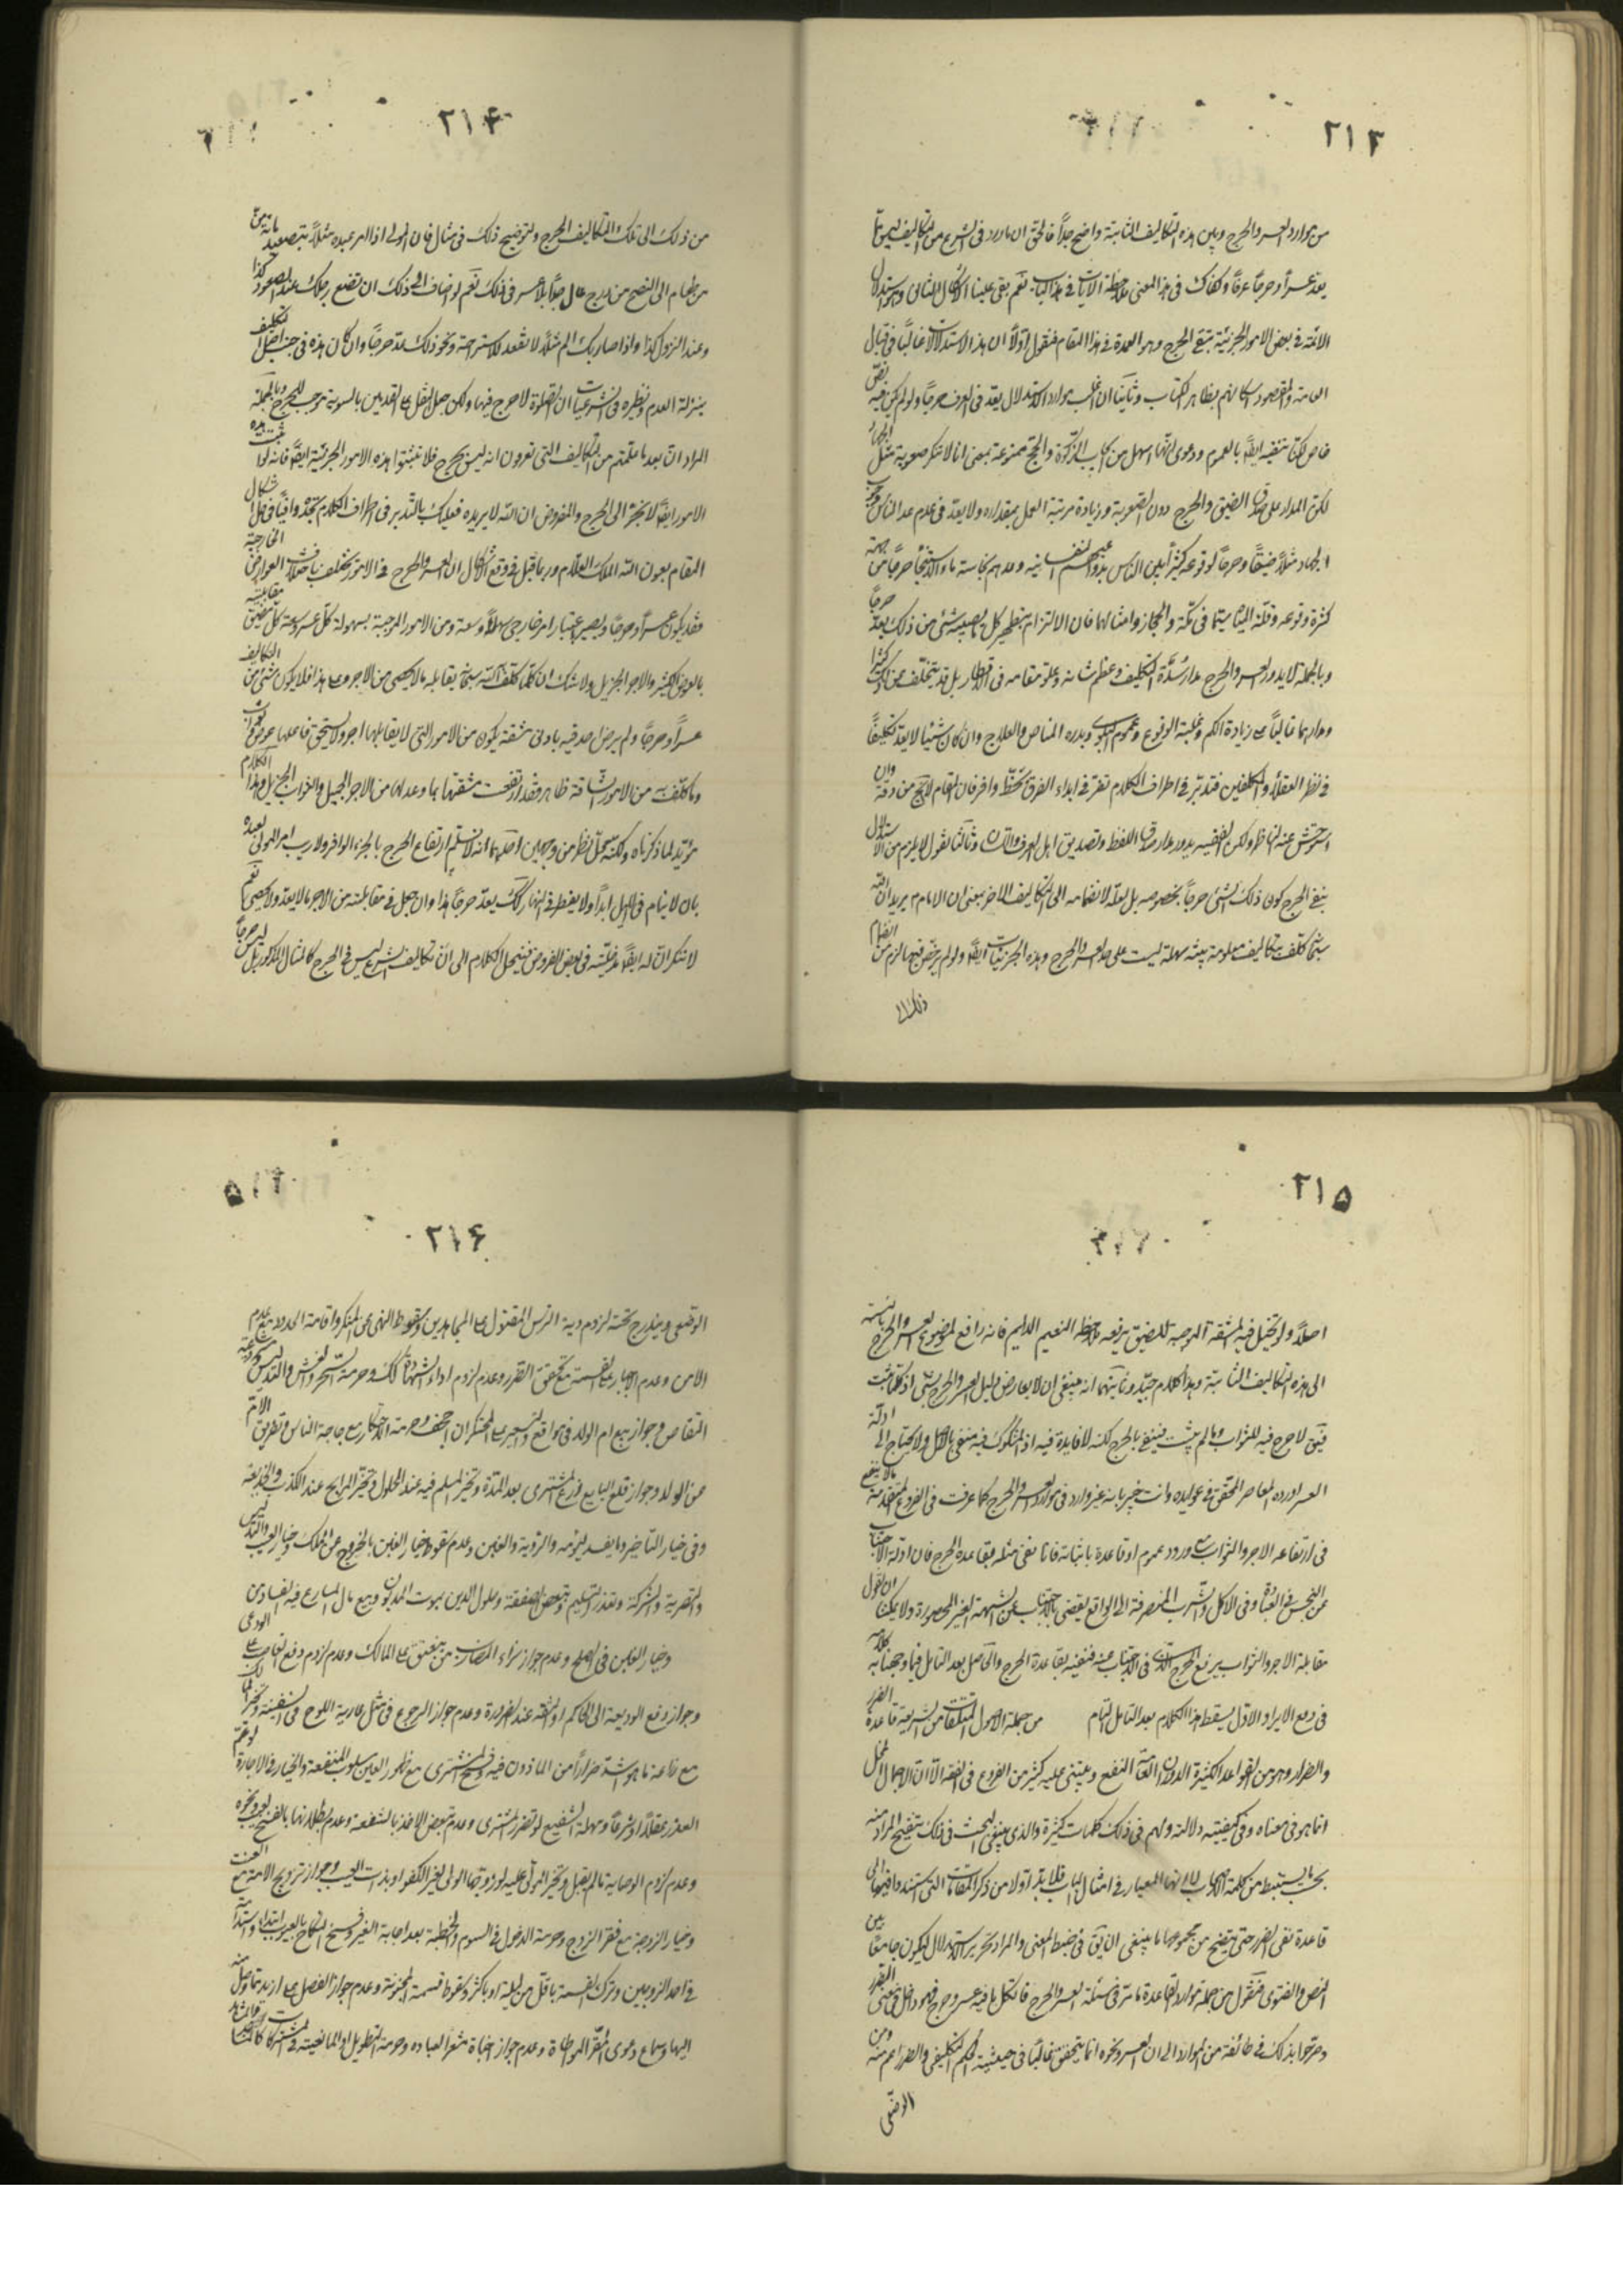 ۲۱۳
من موارد العسر والحرج وبين هذه التكاليف الثابتة واضح جداً فالحق ان ما ورد فى الشرع من التكاليف ليس مما
يعد عسراً وحرجاً عرفاً وكفاك فى هذا المعنى ملاحظة الآيات فى هذا الباب نعم بقى علينا الاشكال الثانى وهو استدلال
الائمة فى بعض الامور الجزئية بنفى الحرج وهو العمدة فى هذا المقام فنقول اولاً ان هذا الاستدلالات غالباً فى قبال
العامة والمقصود اسكاتهم بظاهر الكتاب وثانيا ان اغلب موارد الاستدلال يعد فى العرف حرجاً ولو لم يكن فيه نص
خاص لكنا ننفيه ايضاً بالعموم ودعوى انها اسهل من باب الزكوة والحج ممنوعة بمعنى انا لا ننكر صعوبة مثل الجهاد
لكن المدار على صدق الضيق والحرج دون الصعوبة وزيادة مرتبة العمل بمقداره ولا يعد فى عدم عد الناس
الجهاد مثلاً ضيقاً وحرجاً لوقوعه كثيراً بين الناس بدواعيهم النفسانية وعدهم نجاسة ماء الاستنجاء حرجاً من جهة
كثرة وقوعه وقلة المياه سيما فى مكة والحجاز وامثالها فان الالتزام بتطهير كل ما يصيبه شئ من ذلك يعد حرجاً
وبالجملة لا يدور العسر والحرج مدار شدة التكليف وعظم شانه وعلو مقامه فى الانظار بل قد يتخلف عن ذلك كثيرا
ومدارهما غالباً على زيادة الكم وغلبة الوقوع وعموم البلوى وندرة المناص والعلاج وان كان شيئا لا يعد تكليفاً
فى نظر العقلاء والمكلفين فتدبر فى اطراف الكلام تفز فى ابداء الفرق بحظ وافر فان المقام لا يخلو من دقة وان
استوحش عنه الناظر ولكن الفقيه يدور مدار صدق اللفظ وتصديق اهل العرف واللسان وثالثا نقول لا يلزم من الاستدلال
بنفى الحرج كون ذلك الشئ حرجاً بخصوصه بل لعله لانضمامه الى التكاليف الاخر بمعنى ان الامام يريد ان الله
سبحانه كلف بتكاليف معلومة بينة سهلة ليست على حد العسر والحرج وهذه الجزئيات ايضاً ولو لم يرخص فيها لزم من انضمام
ذلك الى
۲۱۴
من ذلك الى تلك التكاليف الحرج ولتوضيح ذلك فى مثال فان المولى اذا امر عبده مثلاً بتصعيد ماة من
من طعام الى السطح من مدرج عال جداً بلا عسر فى ذلك نعم لو اضاف الى ذلك ان تضع رجلك عند الصعود كذا
وعند النزول كذا واذا اصاب بك الم مثلاً لا تقعد للاستراحة ونحو ذلك عد حرجاً وان كان هذه فى جنب اصل التكليف
بمنزلة العدم ونظيره فى الشرعيات ان الصلوة لا حرج فيها ولكن جعل الثقل على القدمين بالسوية موجب للحرج وبالجملة
المراد ان بعد ما علمتم من التكاليف التى تعرفون انه ليس بحرج فلا تثبتوا هذه الامور الجزئية ايضاً فانه لو ثبت هذه
الامور ايضاً لانجر الى الحرج والمفروض ان الله لا يريده فعليك بالتدبر فى اطراف الكلام تجده وافياً فى حل اشكال
المقام بعون الله الملك العلام وربما قيل فى وقع الاشكال ان العسر والحرج فى الامور يختلف باختلاف العوارض الخارجية
فقد يكون عسراً وحرجاً ويصير باعتبار امر خارجى سهلاً وسعة ومن الامور الموجبة بسهولة كل عسر وسعة كل ضيق مقابلته
بالعوض الكثير والاجر الجزيل ولا شك ان كلما كلف الله سبحانه يقابله ما لا يحصى من الاجر وعلى هذا فلا يكون شئ من التكاليف
عسراً وحرجاً ولم يرض صدقه بادنى مشقة يكون من الامور التى لا يقابلها اجر ولا يستحق فاعلها عوضاً
وما كلف من الامور الشاقة ظاهر فقد ارتفعت مشقتها بما وعد لها من الاجر الجميل والثواب الجزيل وهذا الكلام
مؤيد لما ذكرناه ولكنه محل نظر من وجهين احدهما انه لا نسلم ارتفاع الحرج بالجزاء الوافر ولا ريب امر المولى لعبده
بان لا ينام فى الليل ابداً ولا يفطر فى النهار كك يعد حرجاً هذا وان جعل فى مقابلته من الاجر ما لا يعد ولا يحصى نعم
لا ننكر ان له ايضاً مدخلية فى بعض الفروض فينحل الكلام الى ان تكاليف الشرع ليس فى الحرج كالمثال المذكور بل ليس حرجاً
۲۱۵
اصلاً ولو تخيل فيه المشقة الموجبة للضيق يرفعه ملاحظة النعيم الدايم فانه رافع لموضوع العسر والحرج بالنسبة
الى هذه التكاليف الثابتة وهذا كلام جيد وثانيهما انه ينبغى ان لا يعارض دليل العسر والحرج بشئ اذ كلما ثبت
يبق لا حرج فيه للثواب وما لم يثبت فينفى بالحرج لكنه لا فايدة فيه اذ المشكوك فيه منفى بالاصل ولا يحتاج الى ادلة
العسر اورده المعاصر المحقق فى عوايده وانت خبير بانه غير وارد فى موارد العسر والحرج كما عرفت فى الفروع المتقدمة ما لا ينفع
فى ارتفاعه الاجر والثواب مع ورود عموم او قاعدة باثباته فانا ننفى مثله بقاعدة الحرج فان ادلة الاجتناب
عن النجس فى العبادة وفى الاكل والشرب المنصرفة الى الواقع يقضى بالاجتناب عن الشبهة الغير المحصورة ولا يمكننا ان نقول
مقابلة الاجر والثواب يرفع الحرج الذى فى الاجتناب عنه فننفيه بقاعدة الحرج والحاصل بعد التامل فيما وجهنا به كلامه
فى دفع الايراد الاول يسقط هذا الكلام بعد التامل التام من جملة الاصول المتلقات من الشريعة قاعدة الضرر
والضرار وهو من القواعد الكثيرة الدوران العامة النفع ويبتنى عليه كثير من الفروع فى الفقه الا ان الاجمال المخل
انما هو فى معناه وفى كيفيته دلالته ولهم فى ذلك كلمات كثيرة والذى ينبغى البحث فى ذلك تنقيح المراد منه
بحسب ما يستنبط من كلمة الاصحاب لانها المعيار فى امثال الباب فلا بد اولا من ذكر المقامات التى استندوا فيها الى
قاعدة نفى الضرر حتى يتضح من مجموعها ما ينبغى ان يق فى ضبط المعنى والمراد تحرير الاستدلال ليكون جامعاً بين
النص والفتوى فنقول من جملة موارد القاعدة ما مر فى مسئلة العسر والحرج فان كل ما فيه عسر وحرج فهو داخل فى معنى الضرر
وصرحوا بذلك فى طائفة من الموارد الى ان العسر ونحوه انما يتحقق غالباً فى حيثية الحكم التكليفى والضرر اعم منه ومن
الوضعى
۲۱۶
الوضعى ويندرج تحته لزوم دية الترس المقتول على المجاهدين وسقوط النهى عن المنكر واقامة الحدود مع عدم
الامن وعدم الاجبار على القسمة مع تحقق الضرر وعدم لزوم اداء الشهادة كك وحرمة السحر والغش والتدليس
التقاص وجواز بيع ام الولد فى مواقع والتسعير على المحتكر ان اجحف وحرمة الاحتكار مع حاجة الناس وتفريق الام
عن الولد وجواز قلع البايع زرع المشترى بعد المدة وتخير المسلم فيه عند الحلول وتخير المرابح عند الكذب والخديعة
وفى خيار التاخير وما يفسد ليومه والرؤية والغبن وعدم سقوط خيار الغبن بالخروج عن الملك وخيار العيب والتدليس
والتصرية والشركة وتعذر التسليم وتبعض الصفقة وحلول الدين بموت المديون وبيع مال المسارع فيه الفساد
وخيار الغبن فى الصلح وعدم جواز شراء المضارب من ينعتق على المالك وعدم لزوم دفع الغاصب
وجواز دفع الوديعة الى الحاكم او الثقة عند الضرورة وعدم جواز الرجوع فى مثل عارية اللوح فى السفينة
مع زراعة ما هو اشد ضراراً من الماذون فيه وفسخ المشترى مع ظهور العين مسلوب المنفعة والخيار فى الاجارة
العذر عقلاً او شرعاً ومهلة الشفيع لو تضرر المشترى وعدم تبعض الاخذ بالشفعة وعدم بطلانها بالفسخ لعيب ونحوه
وعدم لزوم الوصاية ما لم يقبل وتخير المولى عليه لو زوجها الولى لغير الكفو او بذات العيب وجواز تزويج الامة مع العنت
وخيار الزوجة مع فقر الزوج وحرمة الدخول فى السوم والخطبة بعد اجابة الغير وفسخ النكاح بالعيوب ابتداء واستدامة
فى احد الزوجين وترك القسمة باقل من ليلة او باكثر وسقوط قسمة المجنونة وعدم جواز الفصل على ازيد
اليها وسماع دعوى المقر المواطاة وعدم جواز